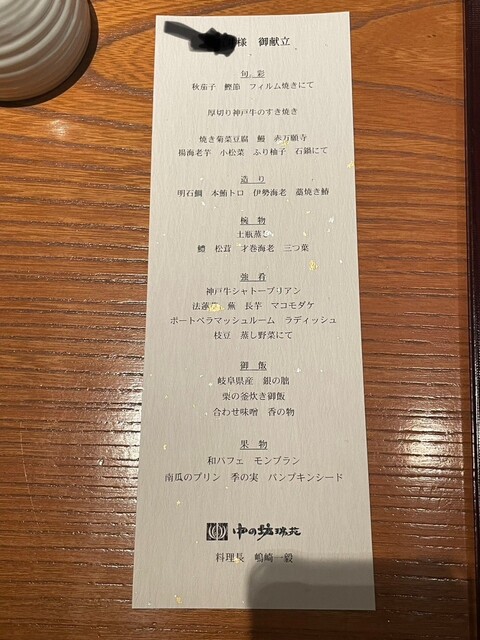 様　御献立
旬　彩
秋茄子　鰹節　フィルム焼きにて
厚切り神戸牛のすき焼き
焼き菊菜豆腐　鰻　赤万願寺
揚海老芋　小松菜　ふり柚子　石鍋にて
造　り
明石鯛　本鮪トロ　伊勢海老　藁焼き鰆
椀　物
土瓶蒸し
鱧　松茸　才巻海老　三つ葉
強　肴
神戸牛シャトーブリアン
法蓮草　蕪　長芋　マコモダケ
ポートベラマッシュルーム　ラディッシュ
枝豆　蒸し野菜にて
御　飯
岐阜県産　銀の朏
栗の釜炊き御飯
合わせ味噌　香の物
果　物
和パフェ　モンブラン
南瓜のプリン　季の実　パンプキンシード
中の坊瑞苑
料理長　嶋崎一毅